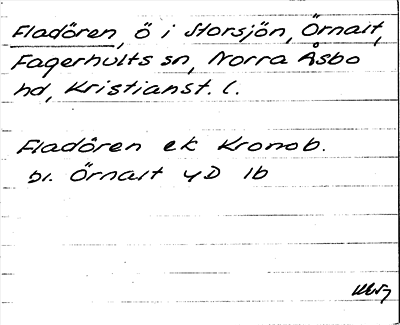 Fladören, ö i Storsjön, Örnalt,
Fagerhults sn, Norra Åsbo
hd, Kristianst. l.
Fladören ek Kronob.
bl. Örnalt 4D 1b